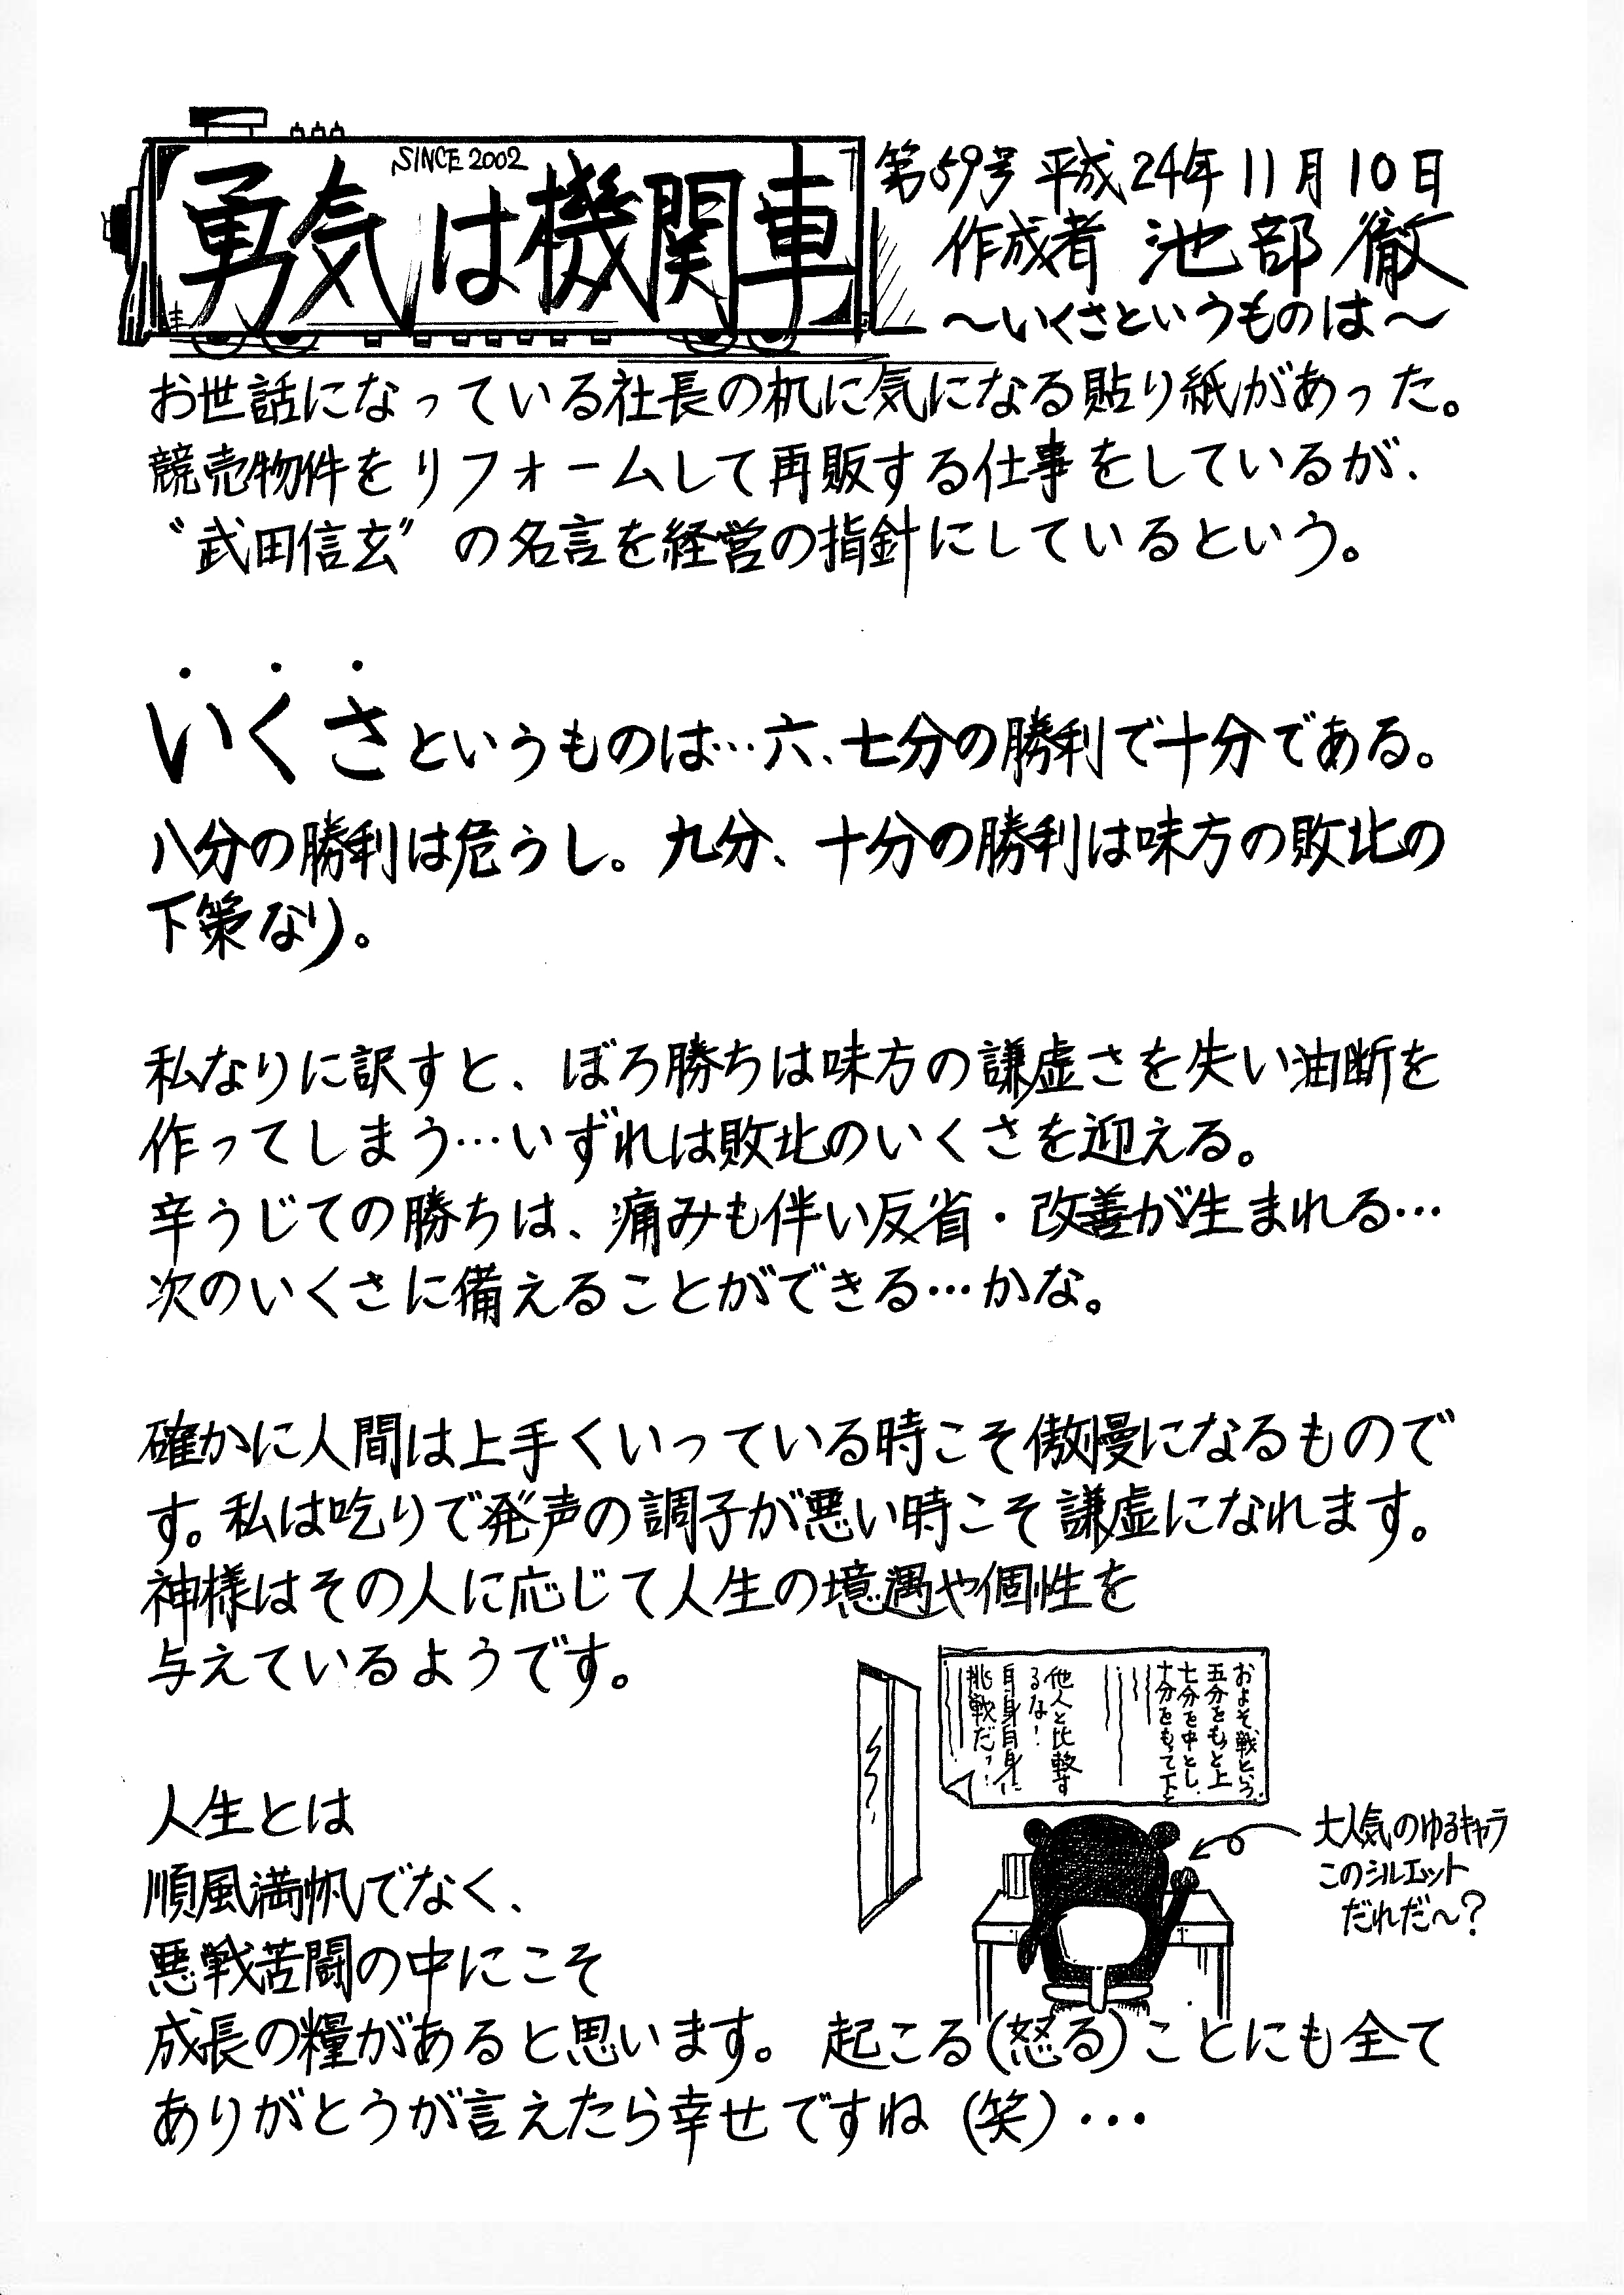 SINCE 2002
勇気は機関車
第59号 平成24年11月10日
作成者 池部 徹
〜いくさというものは〜
お世話になっている社長の机に気になる貼り紙があった。
競売物件をリフォームして再販する仕事をしているが、
〝武田信玄〟の名言を経営の指針にしているという。
いくさというものは…六、七分の勝利で十分である。
八分の勝利は危うし。九分、十分の勝利は味方の敗北の
下策なり。
私なりに訳すと、ぼろ勝ちは味方の謙虚さを失い油断を
作ってしまう…いずれは敗北のいくさを迎える。
辛うじての勝ちは、痛みも伴い反省・改善が生まれる…
次のいくさに備えることができる…かな。
確かに人間は上手くいっている時こそ傲慢になるもので
す。私は吃りで発声の調子が悪い時こそ謙虚になれます。
神様はその人に応じて人生の境遇や個性を
与えているようです。
およそ戦という
五分をもっと上
七分を中とし
十分をもって下と
他人と比較す
るな!
自身自身に
挑戦だっ!
大人気のゆるキャラ
このシルエット
だれだ〜?
人生とは
順風満帆でなく、
悪戦苦闘の中にこそ
成長の糧があると思います。起こる(怒る)ことにも全て
ありがとうが言えたら幸せですね(笑)…